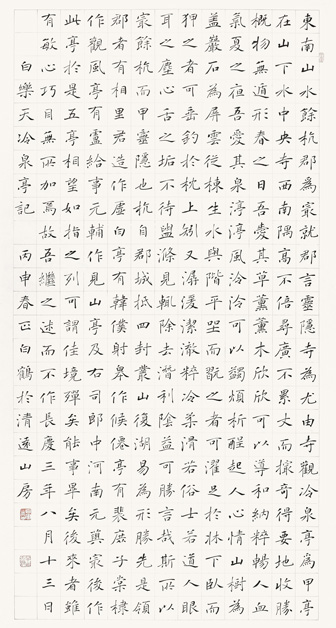 東南山水餘杭郡為冣就郡言靈隱寺為尤由寺觀冷泉亭為甲亭
在山下水中央寺西南隅高不倍尋廣不累丈而撮奇得要地收勝
概物無遁形春之日吾愛其草薰薰木欣欣可以導和納粹暢人血
氣夏之夜吾愛其泉渟渟風泠泠可以蠲煩析酲起人心情山樹為
蓋巖石為屏雲從棟生水與階平坐而翫之者可濯足於牀下臥而
狎之者可垂釣於枕上矧又潺湲潔澈粹冷柔滑若俗士若道人眼
耳之塵心舌之垢不待盥滌見輒除去潛利陰益可勝言哉斯所以
冣餘杭而甲靈隱也杭自郡城抵四封叢山復湖易為形勝先是領
郡者有相里君造作虛白亭有韓僕射皋作候僊亭有裴庶子棠棣
作觀風亭有盧給事元輔作見山亭及右司郎中河南元藇冣後作
此亭於是五亭相望如指之列可謂佳境殫矣能事畢矣後來者雖
有敏心巧目無所加焉故吾繼之述而不作長慶三年八月十三日
白樂天冷泉亭記 丙申春正白鶴於清遠山房